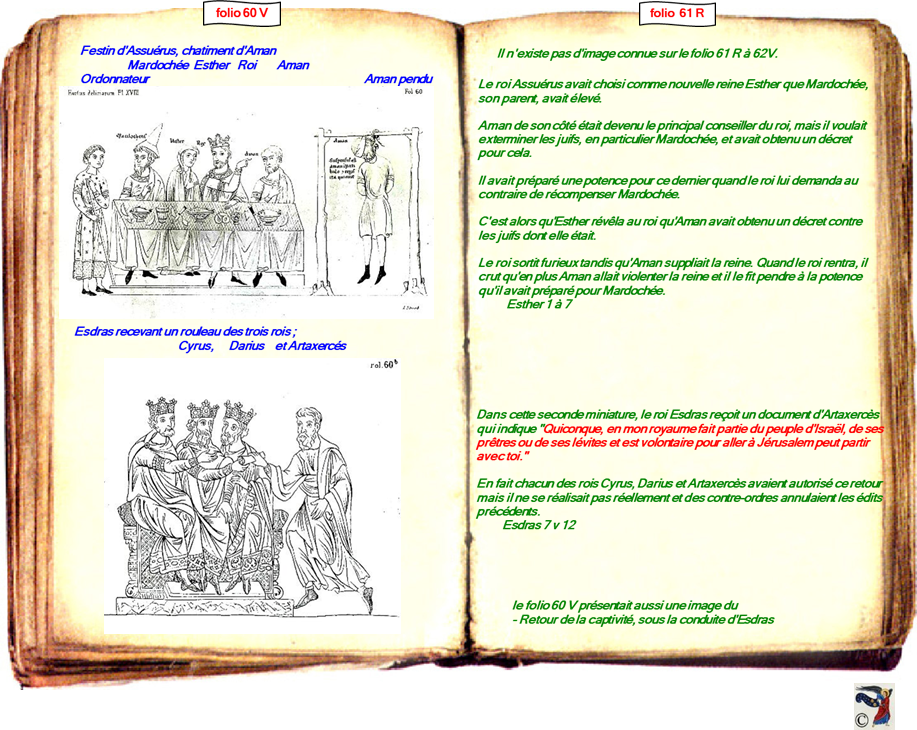 folio 60 V
Festin d'Assuérus, chatiment d'Aman
Mardochée Esther Roi Aman
Ordonnateur Aman pendu
Hortus deliciarum Pl. XVIII Fol 60
Mardocheus
Hester
Rex
Aman
Aman
Esdras recevant un rouleau des trois rois ;
Cyrus, Darius et Artaxercés
fol. 60b
folio 61 R
Il n'existe pas d'image connue sur le folio 61 R à 62V.
Le roi Assuérus avait choisi comme nouvelle reine Esther que Mardochée,
son parent, avait élevé.
Aman de son côté était devenu le principal conseiller du roi, mais il voulait
exterminer les juifs, en particulier Mardochée, et avait obtenu un décret
pour cela.
Il avait préparé une potence pour ce dernier quand le roi lui demanda au
contraire de récompenser Mardochée.
C'est alors qu'Esther révéla au roi qu'Aman avait obtenu un décret contre
les juifs dont elle était.
Le roi sortit furieux tandis qu'Aman suppliait la reine. Quand le roi rentra, il
crut qu'en plus Aman allait violenter la reine et il le fit pendre à la potence
qu'il avait préparé pour Mardochée.
Esther 1 à 7
Dans cette seconde miniature, le roi Esdras reçoit un document d'Artaxercès
qui indique "Quiconque, en mon royaume fait partie du peuple d'Israël, de ses
prêtres ou de ses lévites et est volontaire pour aller à Jérusalem peut partir
avec toi."
En fait chacun des rois Cyrus, Darius et Artaxercès avaient autorisé ce retour
mais il ne se réalisait pas réellement et des contre-ordres annulaient les édits
précédents.
Esdras 7 v 12
le folio 60 V présentait aussi une image du
- Retour de la captivité, sous la conduite d'Esdras
©